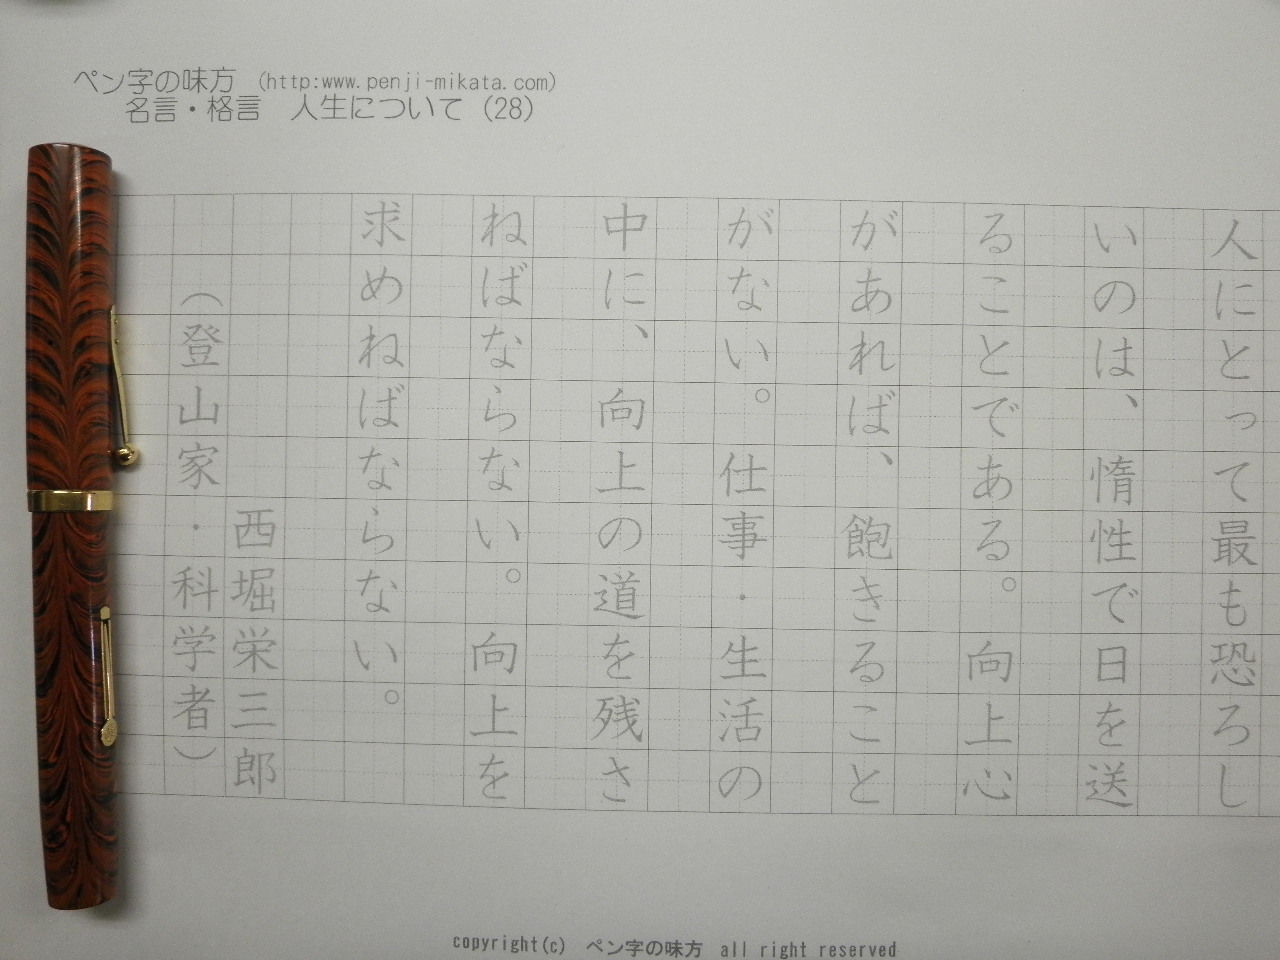 ペン字の味方 (http:www.penji-mikata.com)
名言・格言 人生について (28)
人にとって最も恐ろし
いのは、惰性で日を送
ることである。向上心
があれば、飽きること
がない。仕事・生活の
中に、向上の道を残さ
ねばならない。向上を
求めねばならない。
西堀栄三郎
(登山家・科学者)
copyright(c) ペン字の味方 all right reserved